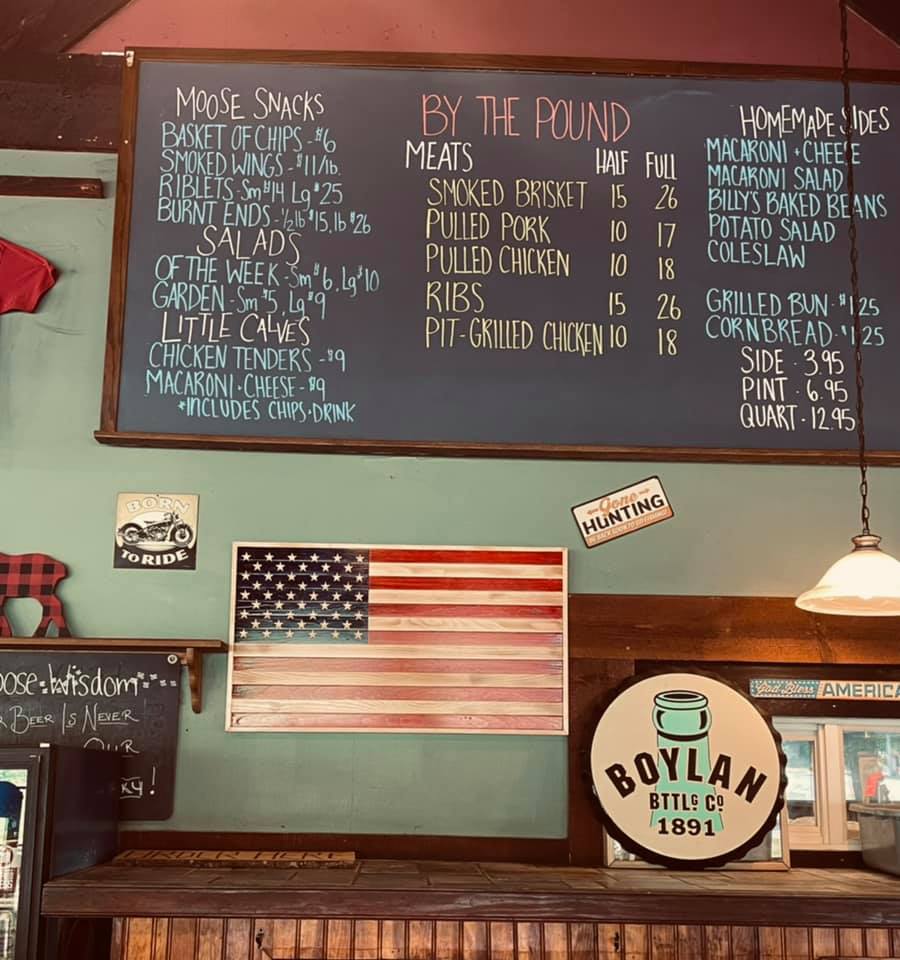 MOOSE SNACKS
BASKET OF CHIPS - $6
SMOKED WINGS - $11/lb.
RIBLETS - Sm $14 Lg $25
BURNT ENDS - 1/2lb $15, lb $26
SALADS
OF THE WEEK - Sm $6, Lg $10
GARDEN - Sm $5, Lg $9
LITTLE CALVES
CHICKEN TENDERS - $9
MACARONI + CHEESE - $9
*INCLUDES CHIPS + DRINK
BY THE POUND
MEATS HALF FULL
SMOKED BRISKET 15 26
PULLED PORK 10 17
PULLED CHICKEN 10 18
RIBS 15 26
PIT-GRILLED CHICKEN 10 18
HOMEMADE SIDES
MACARONI + CHEESE
MACARONI SALAD
BILLY'S BAKED BEANS
POTATO SALAD
COLESLAW
GRILLED BUN - $1.25
CORNBREAD - $1.25
SIDE - 3.95
PINT - 6.95
QUART - 12.95
BORN
TO RIDE
Gone
HUNTING
Wisdom
BEER IS NEVER
OUR
God Bless AMERICA
BOYLAN
BTTLG CO
1891
ORDER HERE